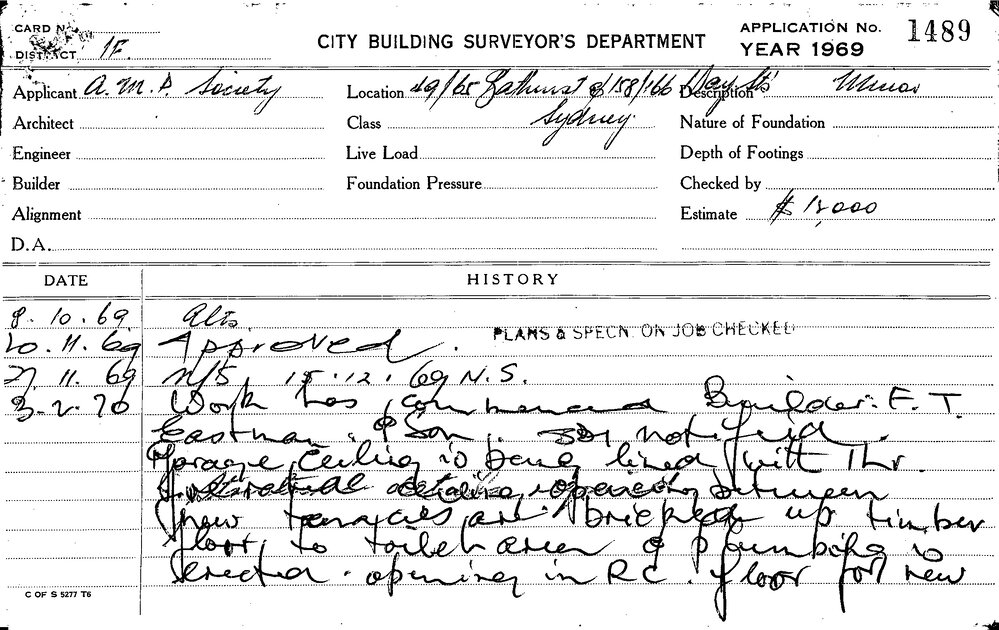 CARD No
DISTRICT 1F.
CITY BUILDING SURVEYOR'S DEPARTMENT
APPLICATION No. 1489
YEAR 1969
Applicant A. M. P. Society
Location 49/65 Bathurst & 158/166 Day Sts
Sydney.
Description Minor
Architect
Class
Nature of Foundation
Engineer
Live Load
Depth of Footings
Builder
Foundation Pressure
Checked by
Alignment
Estimate $
D.A.
DATE HISTORY
8. 10. 69 Alts.
20. 11. 69 Approved.
PLANS & SPECN. ON JOB CHECKED
27. 11. 69 N/S. 15. 12. 69 N.S.
3. 2. 70 Work has commenced Builder. E. T.
Eastman & Son. notified.
Garage Ceiling is being lined with 1 hr.
between
new tenancies are bricked up timber
floor to toilet area & plumbing is
erected. opening in R C. floor for new
C OF S 5277 T6